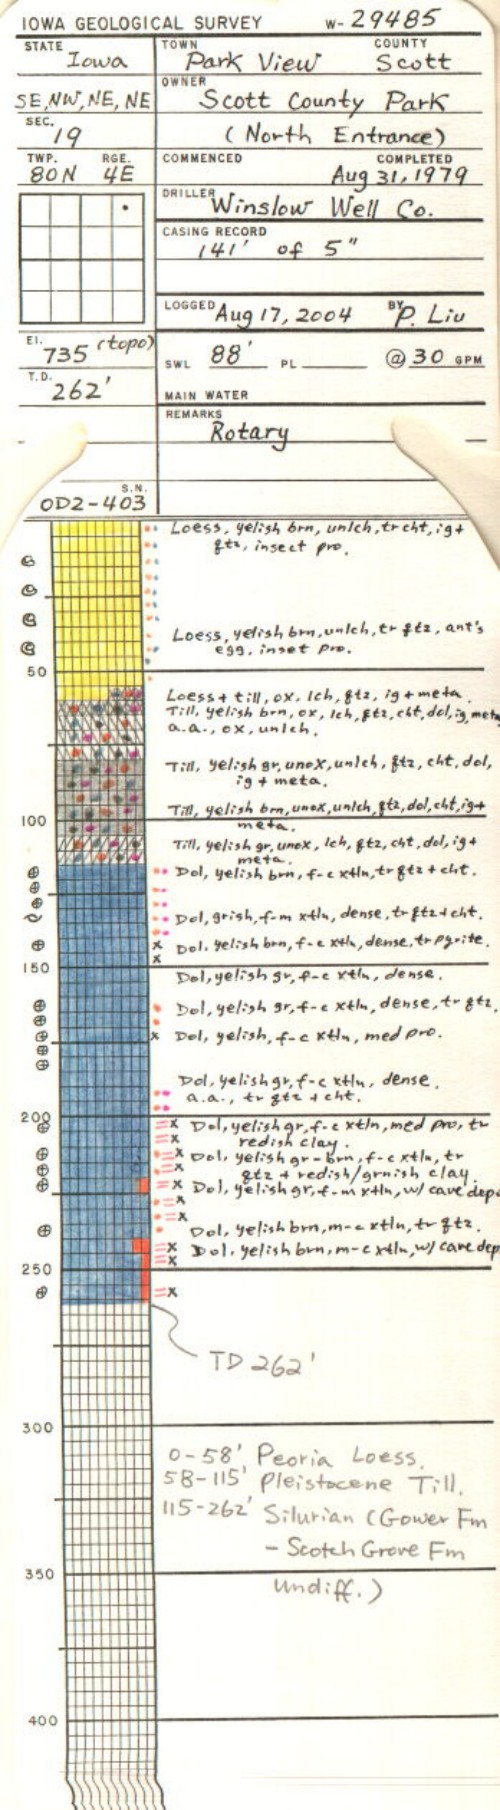 IOWA GEOLOGICAL SURVEY W- 29485
STATE Iowa TOWN Park View COUNTY Scott
SE, NW, NE, NE OWNER Scott County Park
SEC. 19 (North Entrance)
TWP. 80N RGE. 4E COMMENCED COMPLETED Aug 31, 1979
DRILLER Winslow Well Co.
CASING RECORD
141' of 5"
LOGGED Aug 17, 2004 BY P. Liu
El. 735 (topo) SWL 88' PL @ 30 GPM
T.D. 262' MAIN WATER
REMARKS
Rotary
S.N.
OD2-403
Loess, yelish brn, unlch, tr cht, ig +
qtz, insect pro.
Loess, yelish brn, unlch, tr qtz, ant's
egg, inset pro.
50
Loess + till, ox, lch, qtz, ig + meta.
Till, yelish brn, ox, lch, qtz, cht, dol, ig, meta
a.a., ox, unlch.
Till, yelish gr, unox, unlch, qtz, cht, dol,
ig + meta.
Till, yelish brn, unox, unlch, qtz, dol, cht, ig +
100
meta.
Till, yelish gr, unox, lch, qtz, cht, dol, ig +
meta.
Dol, yelish brn, f-c xtln, tr qtz + cht.
Dol, grish, f-m xtln, dense, tr qtz + cht.
Dol, yelish brn, f-c xtln, dense, tr pyrite.
150
Dol, yelish gr, f-c xtln, dense.
Dol, yelish gr, f-c xtln, dense, tr qtz.
Dol, yelish, f-c xtln, med pro.
Dol, yelish gr, f-c xtln, dense.
a.a., tr qtz + cht.
200
Dol, yelish gr, f-c xtln, med pro, tr
redish clay.
Dol, yelish gr - brn, f-c xtln, tr
qtz + redish/grnish clay
Dol, yelish gr, f-m xtln, w/ cave depo
Dol, yelish brn, m-c xtln, tr qtz.
Dol, yelish brn, m-c xtln, w/ cave dep
250
TD 262'
300
0-58' Peoria Loess.
58-115' Pleistocene Till.
115-262' Silurian (Gower Fm
- Scotch Grove Fm
350
Undiff.)
400